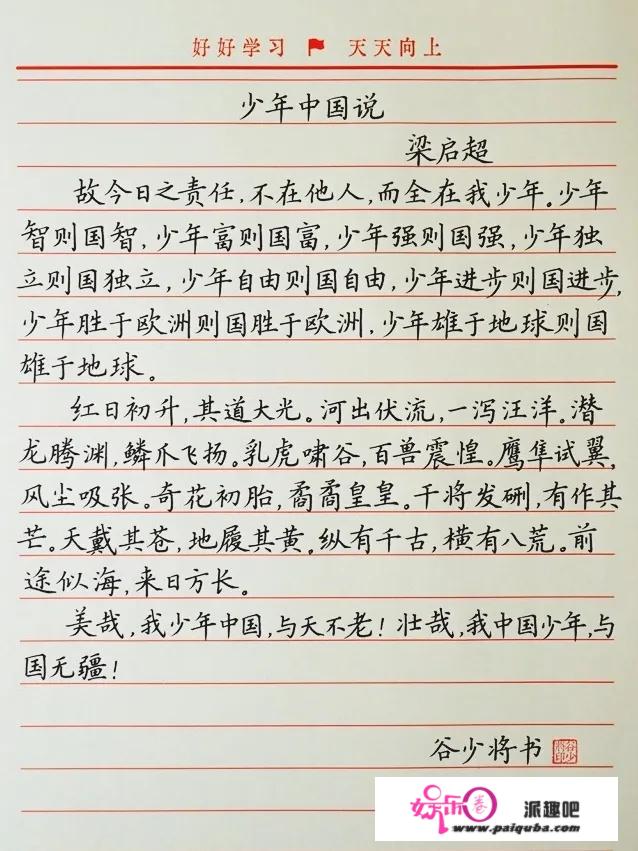 好好学习 天天向上
少年中国说
梁启超
故今日之责任,不在他人,而全在我少年。少年
智则国智,少年富则国富,少年强则国强,少年独
立则国独立,少年自由则国自由,少年进步则国进步,
少年胜于欧洲则国胜于欧洲,少年雄于地球则国
雄于地球。
红日初升,其道大光。河出伏流,一泻汪洋。潜
龙腾渊,鳞爪飞扬。乳虎啸谷,百兽震惶。鹰隼试翼,
风尘吸张。奇花初胎,矞矞皇皇。干将发硎,有作其
芒。天戴其苍,地履其黄。纵有千古,横有八荒。前
途似海,来日方长。
美哉,我少年中国,与天不老!壮哉,我中国少年,与
国无疆!
谷少将书
娱乐圈 派趣吧
www.paiquba.com